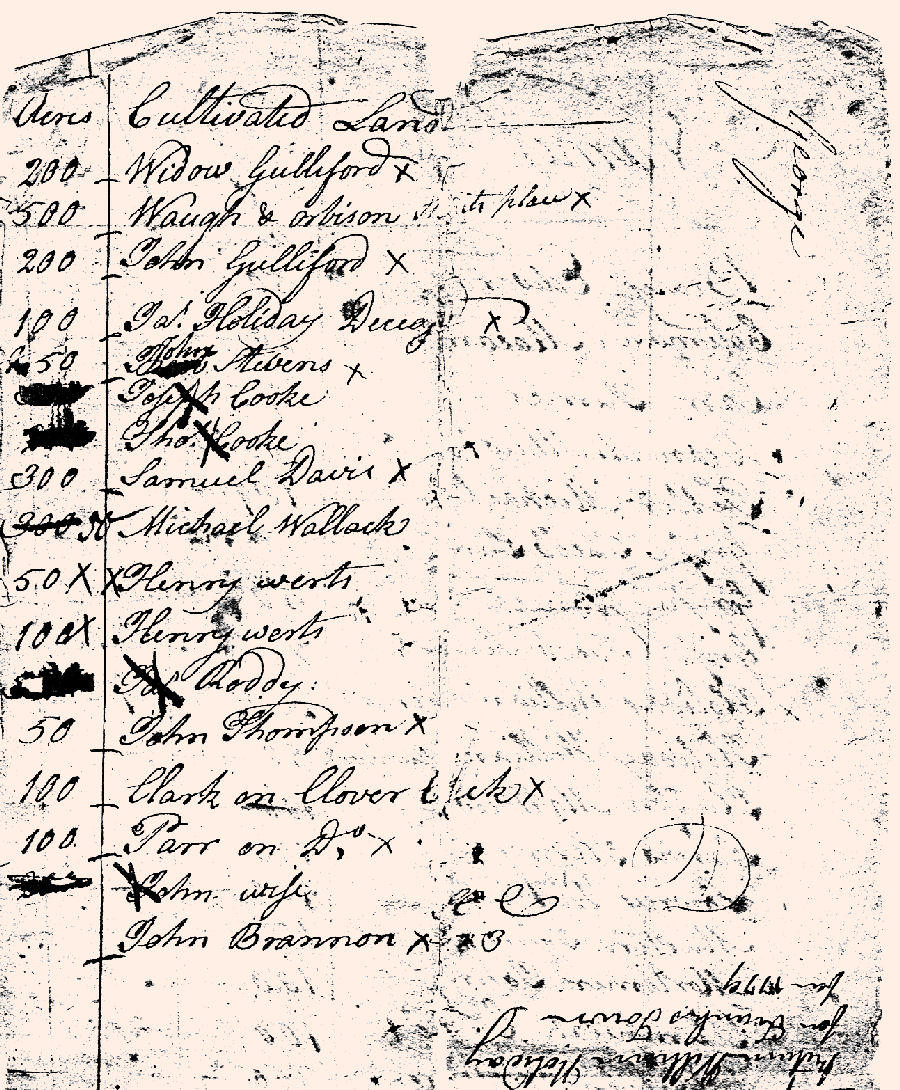 Acres Cultivated Land
200 Widow Gulliford x
500 Waugh & orbison place x
200 John Gulliford x
100 Holiday x
50 John Stevens x
Joseph Cooke
Tho.s Cooke
300 Samuel Davis x
300 50 Michael Wallack
50 X X Henry werts
100 X Henry werts
Roddy
50 John Thompson x
100 Clark on Clover x
100 Parr on Do x
John wise
John Brannon x
George
William Holiday
for Franks Town
for 1779